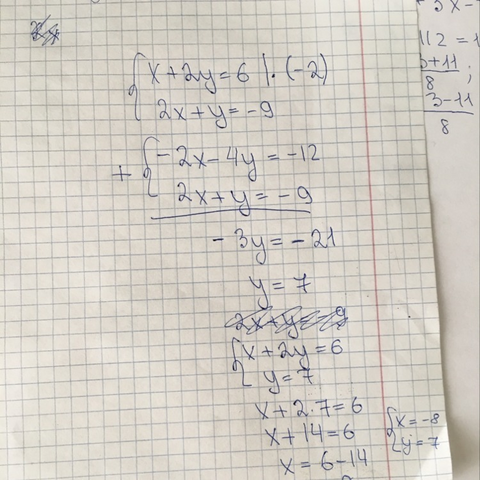 x+2y=6 |·(-2)
2x+y=-9
+
-2x-4y=-12
2x+y=-9
-3y=-21
y=7
2x+y=-9
x+2y=6
y=7
x+2·7=6
x+14=6
x=6-14
x=-8
y=7
5x-
112=1
5+11;
8
3-11
8